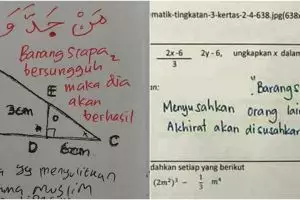 مَنْ جَدَّ وَ
Barang siapa
bersungguh
maka dia
akan
berhasil
E
3cm
D
6cm
C
yg menyulitkan
muslim
matik-tingkatan-3-kertas-2-4-638.jpg(638x
2x-6
3
2y - 6, ungkapkan x dalam
an:
"Barangs
Menyusahkan orang lain
Akhirat akan disusahkan
dahkan setiap yang berikut
(2m²)³ - 1/3 m⁴